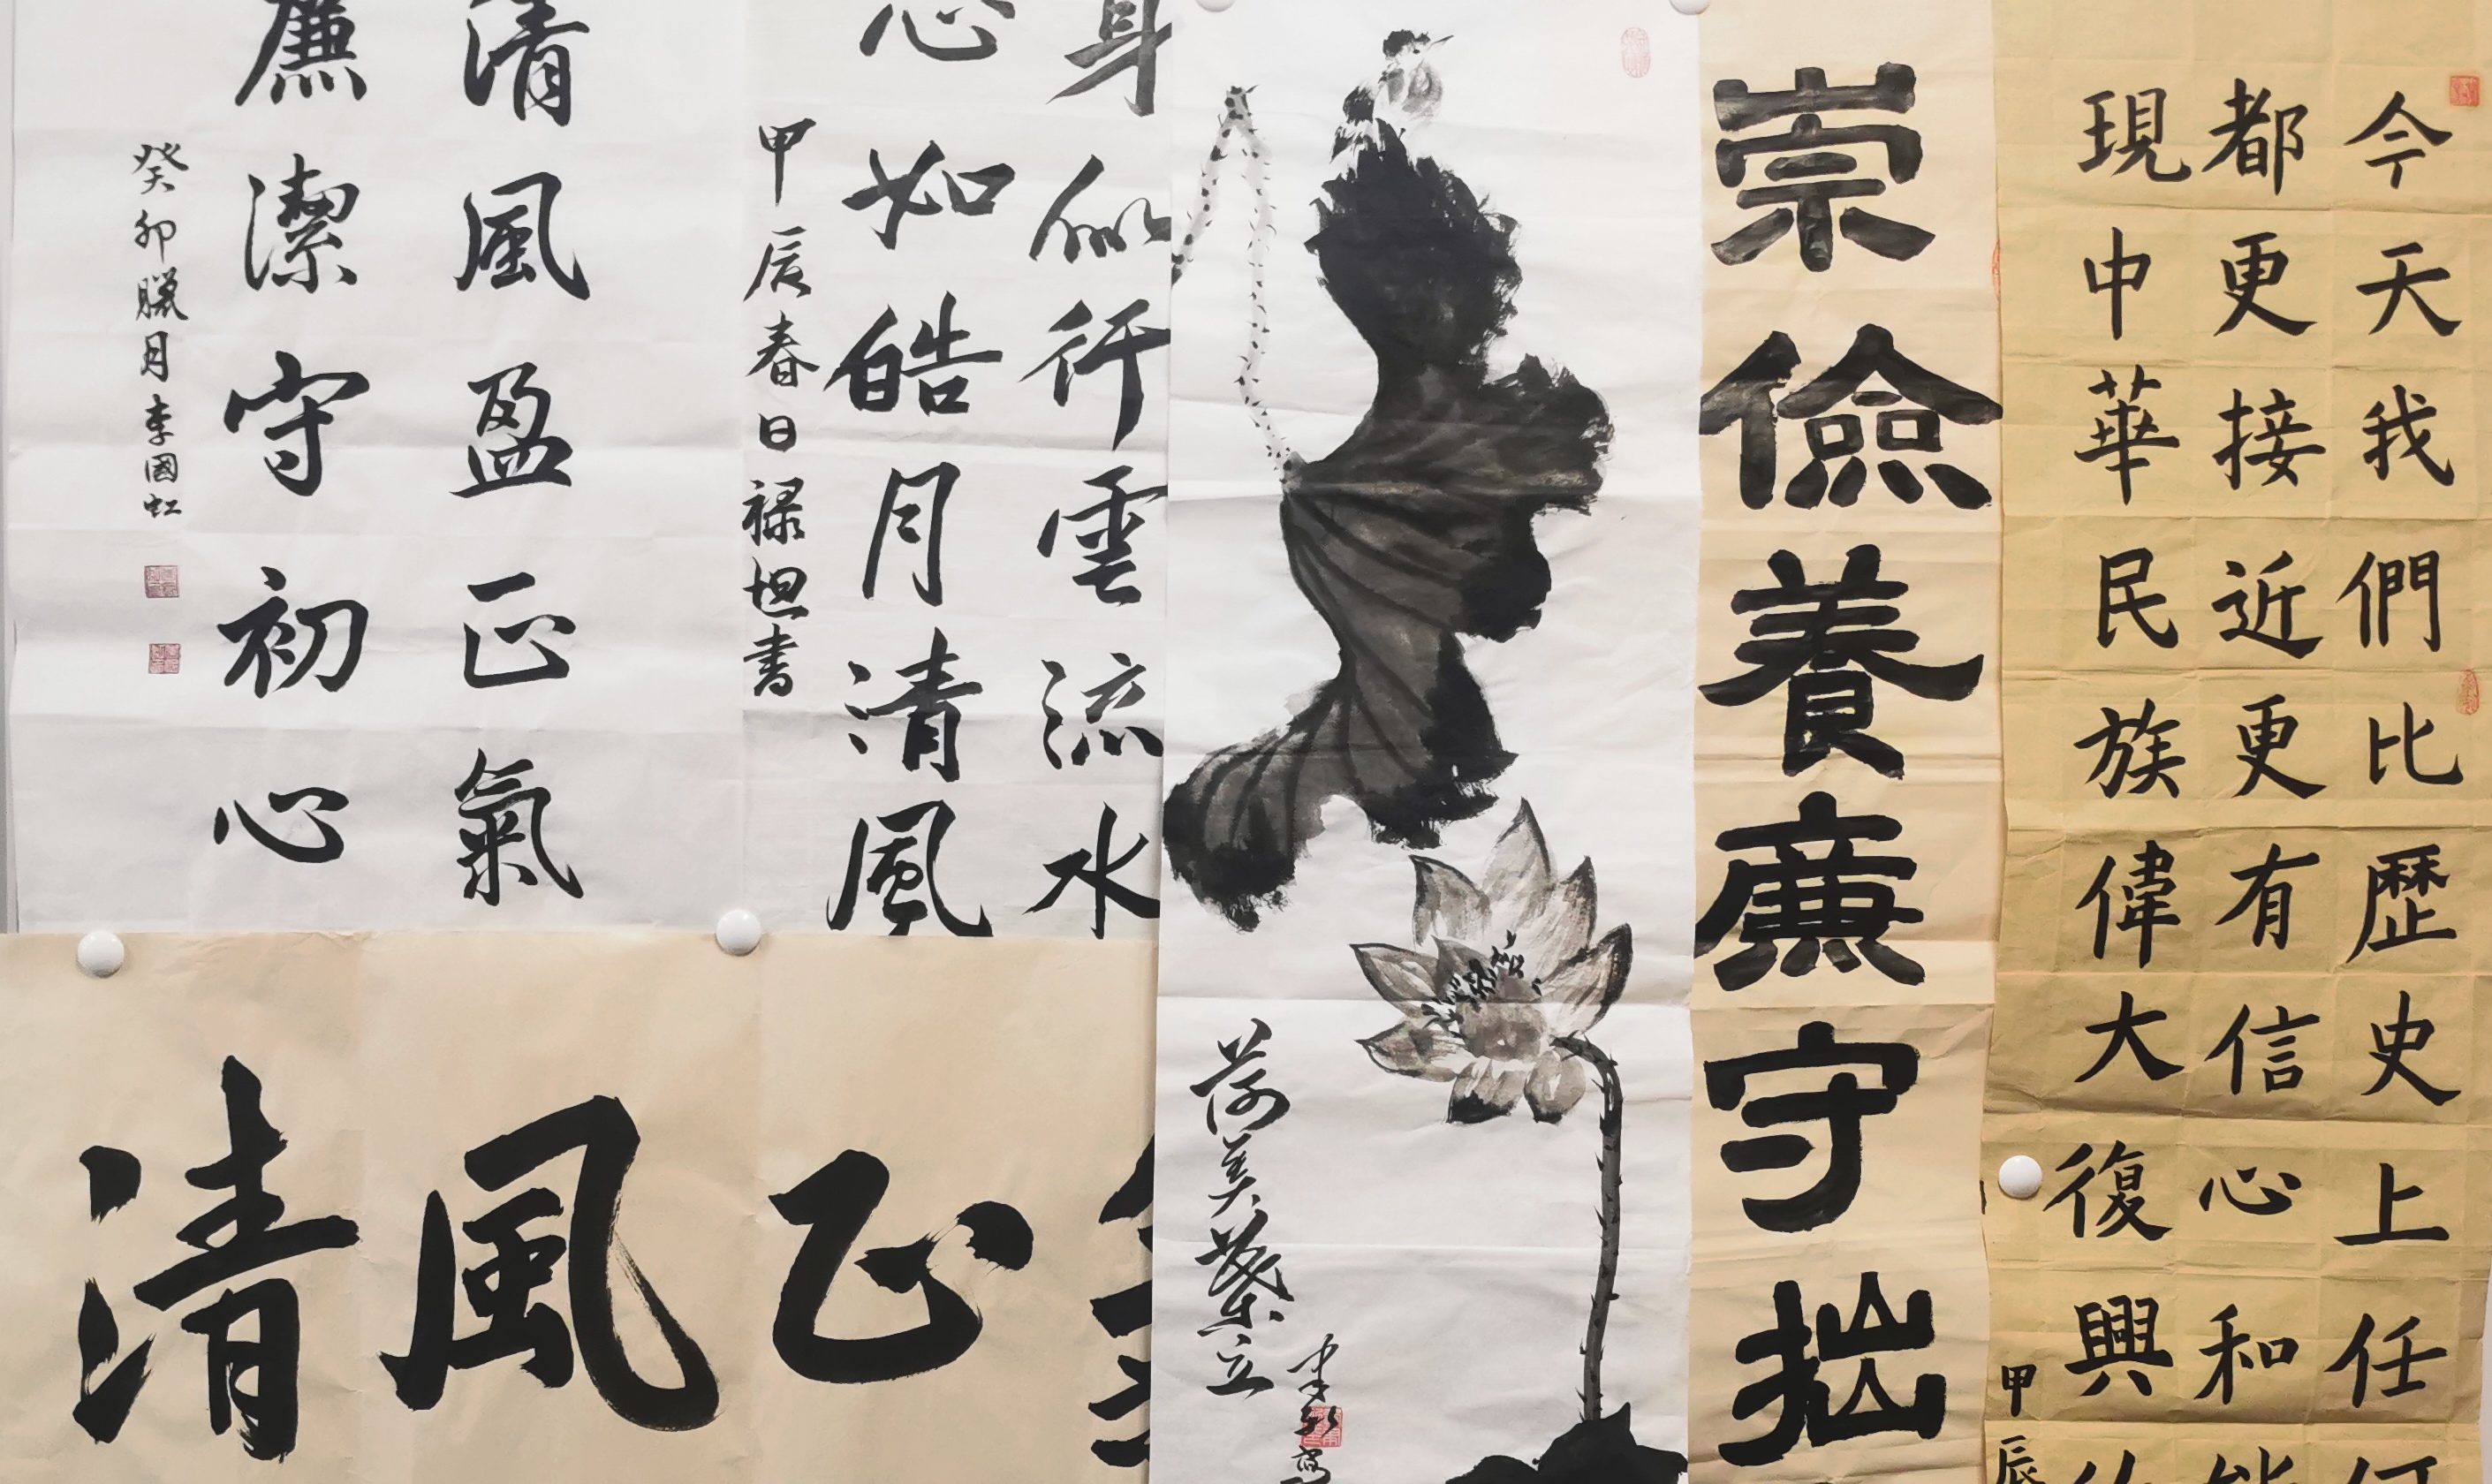 今天我們比歷史上任何
都更接近更有信心和能
現中華民族偉大復興
甲辰
崇儉養廉守拙
荷美葉立
身似行雲流水
心如皓月清風
甲辰春日禄坦書
清風盈正氣
廉潔守初心
癸卯臘月李國虹
清風正